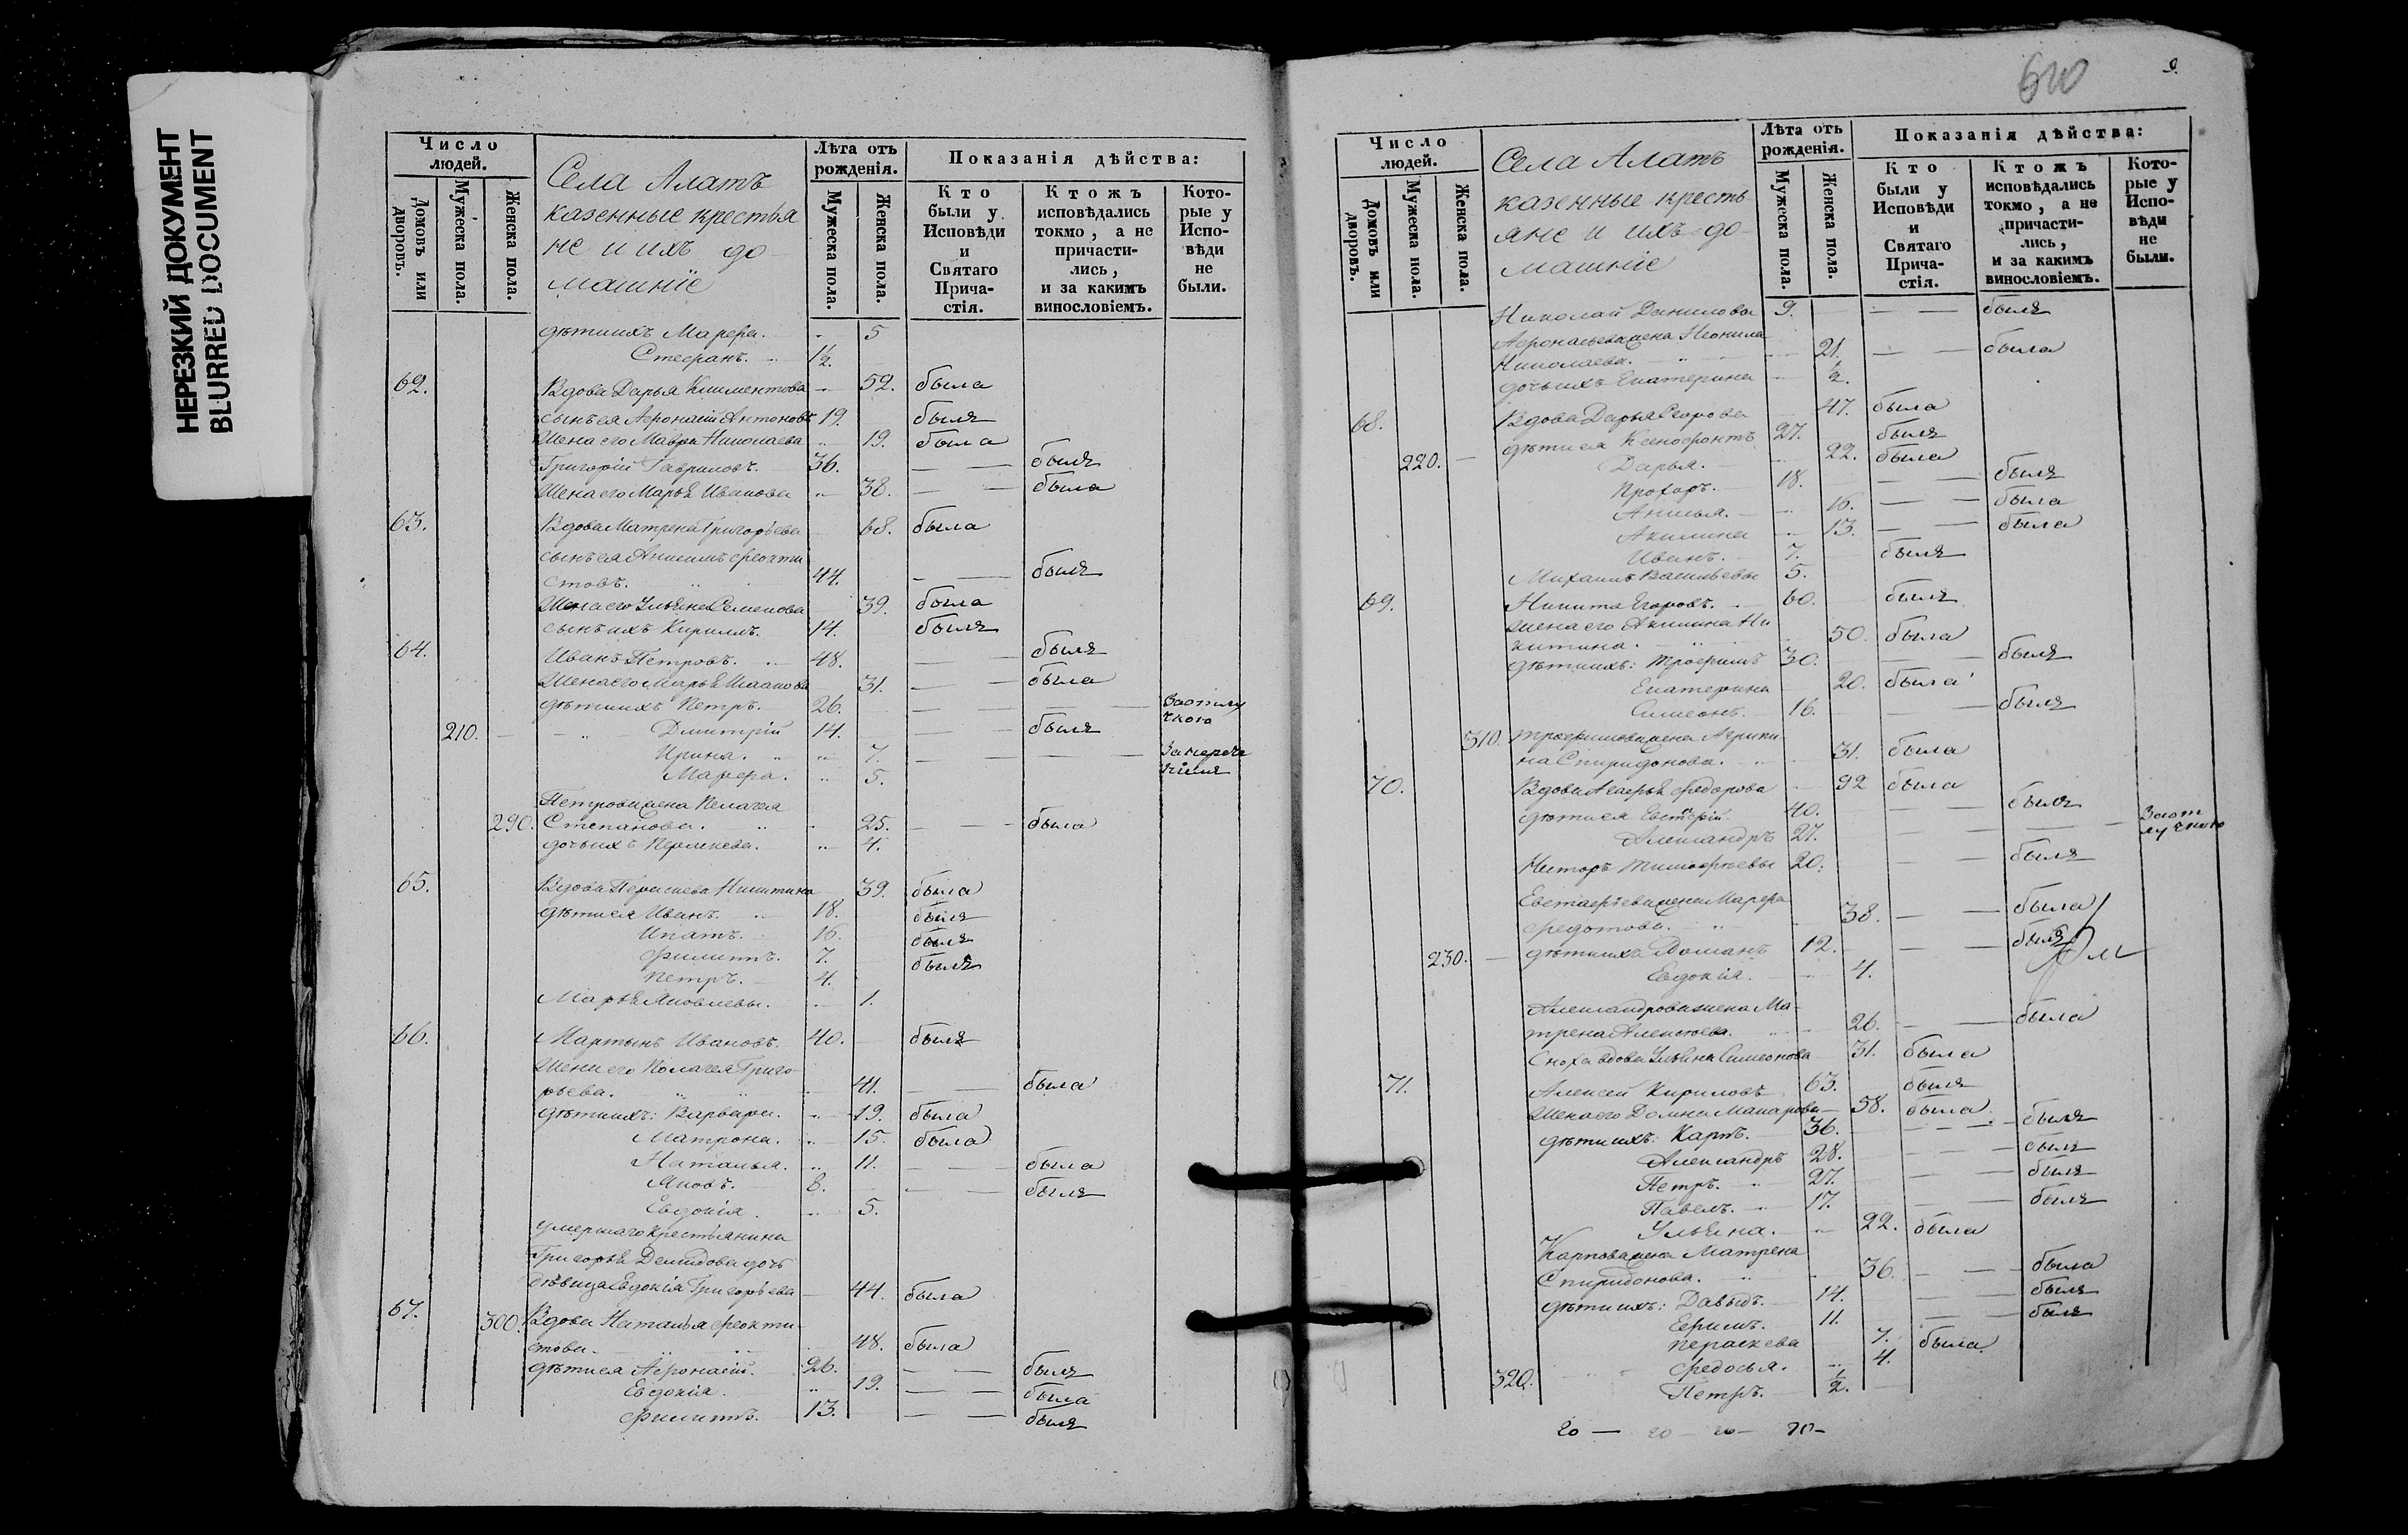 НЕРЕЗКИЙ ДОКУМЕНТ
BLURRED DOCUMENT
Число людей.
Домовъ или дворовъ.
Мужеска пола.
Женска пола.
Села Алатъ
казенные крестья
не и ихъ до-
машніе
Лѣта отъ рожденія.
Мужеска пола.
Женска пола.
Показанія дѣйства:
Кто были у Исповѣди и Святаго Прича-стія.
Ктожъ исповѣдались токмо, а не причасти-лись, и за какимъ винословіемъ.
Кото-рые у Испо-вѣди не были.
дѣти ихъ Марѳа. 5
Стефанъ. 1½.
62. Вдова Дарья Климентова 52. была
сынъ ея Аѳонасій Антоновъ 19. былъ
Жена его Мавра Николаева 19. была
Григорій Гавриловъ. 36. былъ
Жена его Марья Иванова 38. была
63. Вдова Матрена Григорьева 68. была
сынъ ея Анисимъ Ѳеокти
стовъ. 44. былъ
Жена его Ульяна Семенова 39. была
сынъ ихъ Кириллъ. 14. былъ
64. Иванъ Петровъ. 48. былъ
Жена его Марья 31. была
дѣти ихъ Петръ. 26. За отлу
чкою
210. Дмитрій 14. былъ
Ирина. 7.
Марѳа. 5.
Петрова жена Пелагея
290. Степанова. 25. была
дочь ихъ 4.
65. Вдова Никитина 39. была
дѣти ея Иванъ. 18. былъ
Ипатъ. 16. былъ
Филиппъ. 7. былъ
Петръ. 4.
Марья Яковлевы. 1.
66. Мартынъ Ивановъ. 40. былъ
Жена его Пелагея Григо-
рьева. 41. была
дѣти ихъ: Варвара. 19. была
Матрона. 15. была
Наталья. 11. была
Яковъ. 8. былъ
Евдокія. 5.
умершаго крестьянина
Григорья Демидова дочь
дѣвица Евдокія Григорьева 44. была
67. 300. Вдова Наталья Ѳеокти-
стова. 48. была
дѣти ея Аѳонасій. 26. былъ
Евдокія. 19. была
Филиппъ. 13. былъ
620
9.
Число людей.
Домовъ или дворовъ.
Мужеска пола.
Женска пола.
Села Алатъ
казенные кресть
яне и ихъ до-
машніе
Лѣта отъ рожденія.
Мужеска пола.
Женска пола.
Показанія дѣйства:
Кто были у Исповѣди и Святаго Прича-стія.
Ктожъ исповѣдались токмо, а не причасти-лись, и за какимъ винословіемъ.
Кото-рые у Испо-вѣди не были.
Николай Данилова 9. былъ
Аѳонасьева жена Неонила
Николаева. 21. была
дочь ихъ Екатерина ½.
68. Вдова Дарья Егорова 47. была
220. дѣти ея Ксенофонтъ 27. былъ
Дарья. 22. была
Прохоръ. 18. былъ
Анисья. 16. была
Акилина 13. была
Иванъ. 7. былъ
Михаилъ Васильевы 5.
69. Никита Егоровъ. 60. былъ
жена его Акилина Ни
китина. 50. была
дѣти ихъ: Трофимъ 30. былъ
Екатерина 20. была
Симеонъ. 16. былъ
310. Трофимова жена Агрипи
на Спиридонова. 31. была
70. Вдова Агафья Ѳедорова 92 была
дѣти ея 40. былъ
Александръ 27. За от
лучкою
Несторъ Тимофеевы 20. былъ
жена Марѳа
Ѳедотова. 38. была
230. дѣти ихъ 12. былъ
Евдокія. 4.
Александрова жена Ма-
трена Алексѣева. 26. была
Сноха вдова Ульяна Симеонова 31. была
71. Алексѣй Кириловъ 63. былъ
Жена его Домна Макарова 58. была
дѣти ихъ: Карпъ. 36. былъ
Александръ 28. былъ
Петръ. 27. былъ
Павелъ. 17. былъ
Ульяна. 22. была
Карпова жена Матрена
Спиридонова. 36. была
дѣти ихъ: Давыдъ. 14. былъ
Ефимъ. 11. былъ
Параскева 7. была
320. Ѳедосья. 4.
Петръ. ½.
20 — 20 — 20 — 20 —